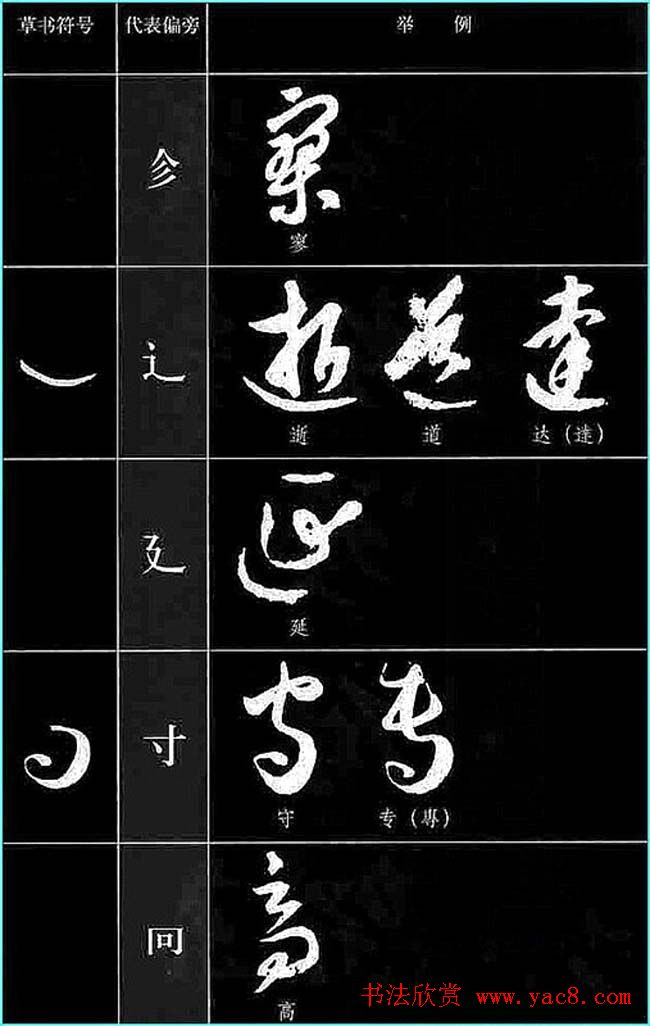 草书符号 代表偏旁 举例
寥
寥
辶
逝 道 达
逝 道 达（達）
廴
延
延
寸
守 专
守 专（專）
高
高
书法欣赏 www.yac8.com